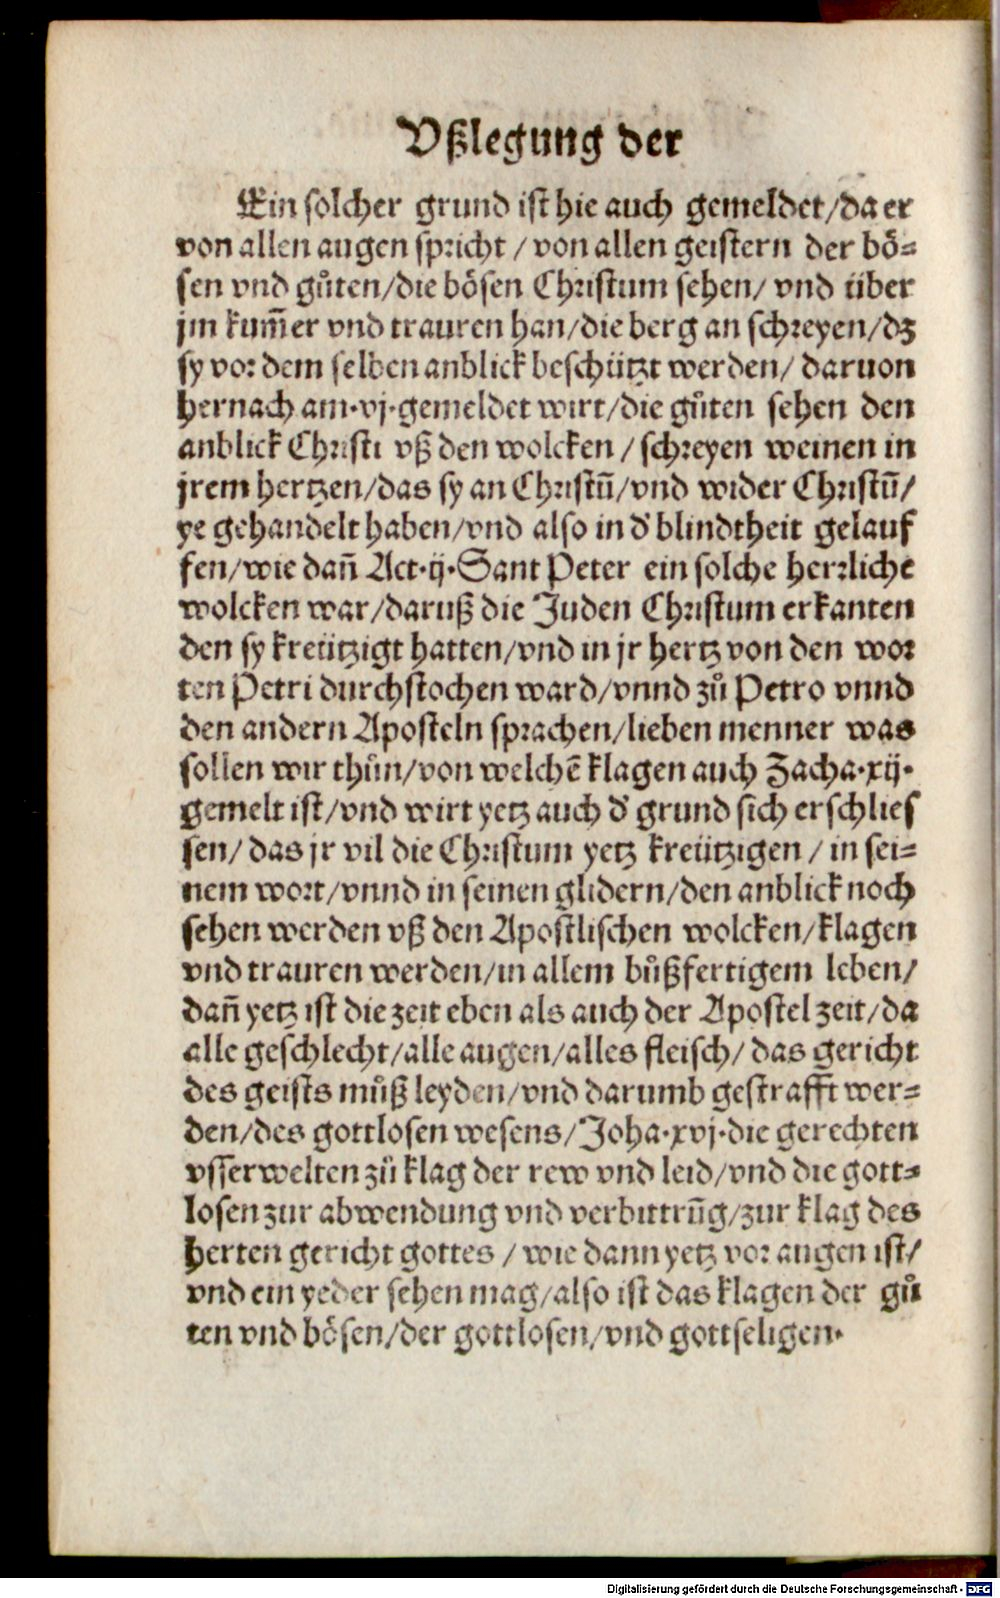 Vßlegung der
Ein solcher grund ist hie auch gemeldet/da er
von allen augen spricht / von allen geistern der bö⸗
sen vnd gůten/die bösen Christum sehen/ vnd über
jm kum̄er vnd trauren han/die berg an schreyen/dz
sy vor dem selben anblick beschützt werden/ daruon
hernach am·vj·gemeldet wirt/die gůten sehen den
anblick Christi vß den wolcken / schreyen weinen in
jrem hertzen/das sy an Christū/vnd wider Christū/
ye gehandelt haben/vnd also in d' blindtheit gelauf
fen/wie dañ Act·ij·Sant Peter ein solche herrliche
wolcken war/daruß die Juden Christum erkanten
den sy kreützigt hatten/vnd in jr hertz von den wor
ten Petri durchstochen ward/vnnd zů Petro vnnd
den andern Aposteln sprachen/lieben menner was
sollen wir thůn/von welchē klagen auch Zacha·xij·
gemelt ist/vnd wirt yetz auch d' grund sich erschlies
sen/ das jr vil die Christum yetz kreützigen / in sei⸗
nem wort/vnnd in seinen glidern/den anblick noch
sehen werden vß den Apostlischen wolcken/klagen
vnd trauren werden/in allem bůßfertigem leben/
dañ yetz ist die zeit eben als auch der Apostel zeit/da
alle geschlecht/alle augen/alles fleisch/ das gericht
des geists můß leyden/vnd darumb gestrafft wer⸗
den/des gottlosen wesens/Joha·xvj·die gerechten
vsserwelten zů klag der rew vnd leid/vnd die gott⸗
losen zur abwendung vnd verbittrūg/zur klag des
herten gericht gottes / wie dann yetz vor augen ist/
vnd ein yeder sehen mag/also ist das klagen der gů
ten vnd bösen/der gottlosen/vnd gottseligen·
Digitalisierung gefördert durch die Deutsche Forschungsgemeinschaft - DFG